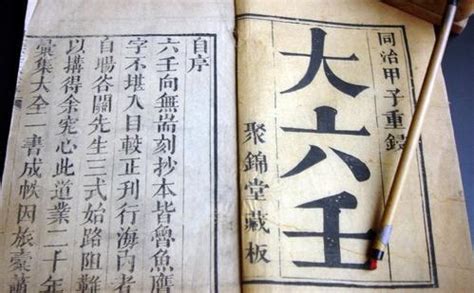 同治甲子重鐫
大六壬
聚錦堂藏板
自序
六壬向無耑刻抄本皆魯魚
字不堪入目較正刊行海內
自場谷關先生三式始路阻難
以搆得余究心此道業二十年
彙集大全二書成帙因旅